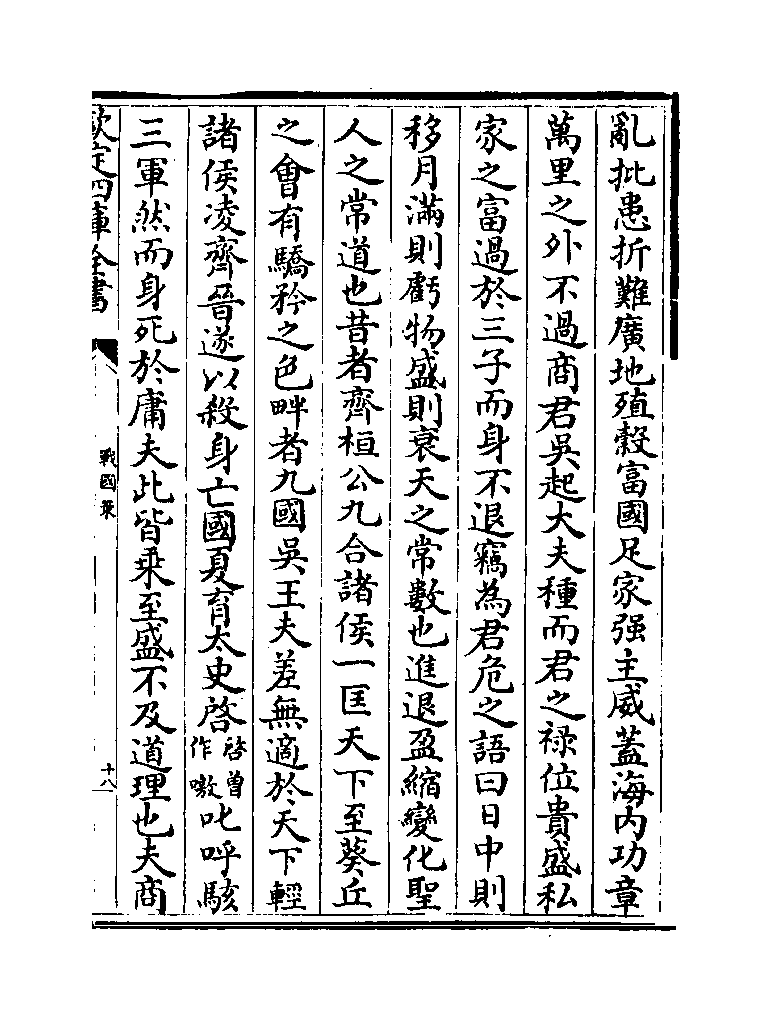 亂批患折難廣地殖穀富國足家强主威蓋海内功章
萬里之外不過商君吳起大夫種而君之禄位貴盛私
家之富過於三子而身不退竊為君危之語曰日中則
移月滿則虧物盛則衰天之常數也進退盈縮變化聖
人之常道也昔者齊桓公九合諸侯一匡天下至葵丘
之會有驕矜之色畔者九國吳王夫差無適於天下輕
諸侯凌齊晉遂以殺身亡國夏育太史啓啓曽作噭叱呼駭
三軍然而身死於庸夫此皆乗至盛不及道理也夫商
欽定四庫全書
戰國策
十八